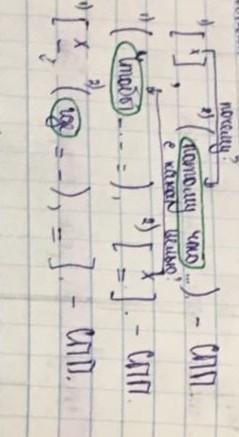 почему?
1) [ x ], 2) (потому что ...) - СПП.
с какой целью?
1) (чтобы - - = ), 2) [ x = ]. - СПП
1) [ x - , 2) (где = - ), = ]. - СПП.